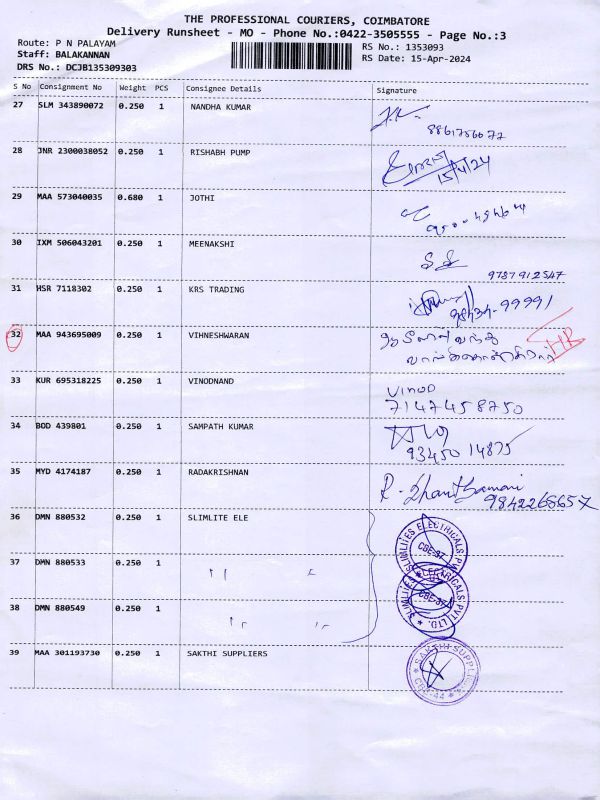 THE PROFESSIONAL COURIERS, COIMBATORE
Delivery Runsheet - MO - Phone No.:0422-3505555 - Page No.:3
Route: P N PALAYAM
Staff: BALAKANNAN
DRS No.: DCJB135309303
RS No.: 1353093
RS Date: 15-Apr-2024
S No Consignment No Weight PCS Consignee Details Signature
27 SLM 343890072 0.250 1 NANDHA KUMAR
8861756077
28 JNR 2300038052 0.250 1 RISHABH PUMP
15/4/24
29 MAA 573040035 0.680 1 JOTHI
30 IXM 506043201 0.250 1 MEENAKSHI
9787912547
31 HSR 7118302 0.250 1 KRS TRADING
98434-99991
32 MAA 943695009 0.250 1 VIHNESHWARAN
33 KUR 695318225 0.250 1 VINODNAND
VINOD
7147458750
34 BOD 439801 0.250 1 SAMPATH KUMAR
93450 14875
35 MYD 4174187 0.250 1 RADAKRISHNAN
9842268657
36 DMN 880532 0.250 1 SLIMLITE ELE
SLIMLITES ELECTRICALS PVT
CBE-37
37 DMN 880533 0.250 1
38 DMN 880549 0.250 1
SLIMLITES ELECTRICALS PVT. LTD.
CBE-37
39 MAA 301193730 0.250 1 SAKTHI SUPPLIERS
SAKTHI SUPPLI
CBE-44